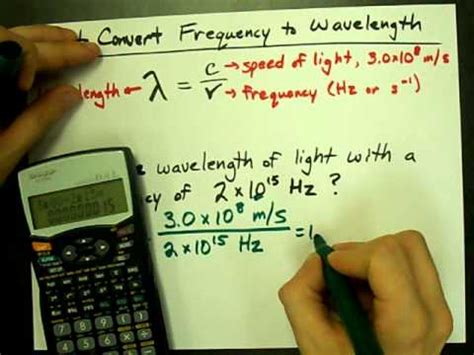 t Convert Frequency to Wavelength
length ← λ = c/ν → speed of light, 3.0×10⁸ m/s
→ frequency (Hz or s⁻¹)
e wavelength of light with a
cy of 2×10¹⁵ Hz ?
3.0×10⁸ m/s
2×10¹⁵ Hz
= 1.